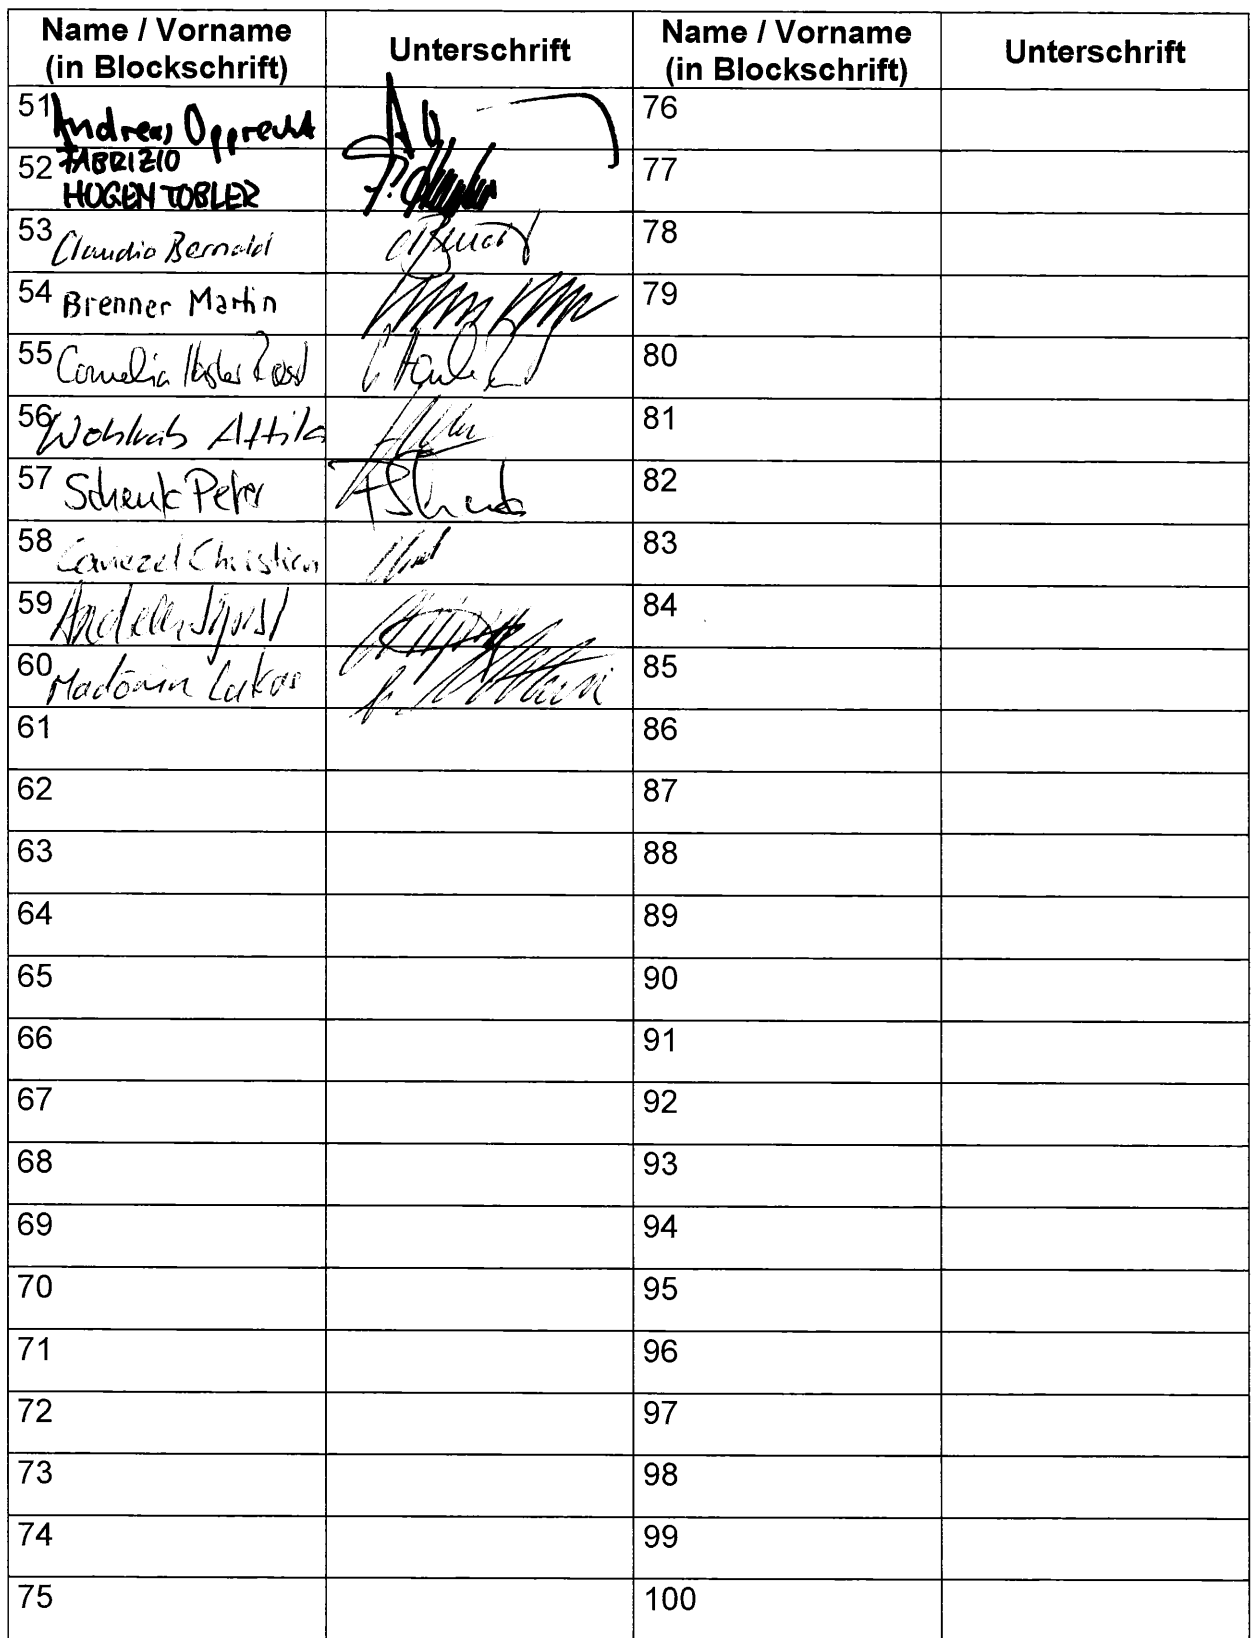 Name / Vorname
(in Blockschrift)
Unterschrift
Name / Vorname
(in Blockschrift)
Unterschrift
51 Andreas Opprecht
76
52 FABRIZIO
HUGENTOBLER
77
53 Claudio Bernold
78
54 Brenner Martin
79
55 Cornelia
80
56 Attila
81
57 Schenk Peter
82
58 Caviezel Christian
83
59
84
60 Madörin Lukas
85
61
86
62
87
63
88
64
89
65
90
66
91
67
92
68
93
69
94
70
95
71
96
72
97
73
98
74
99
75
100